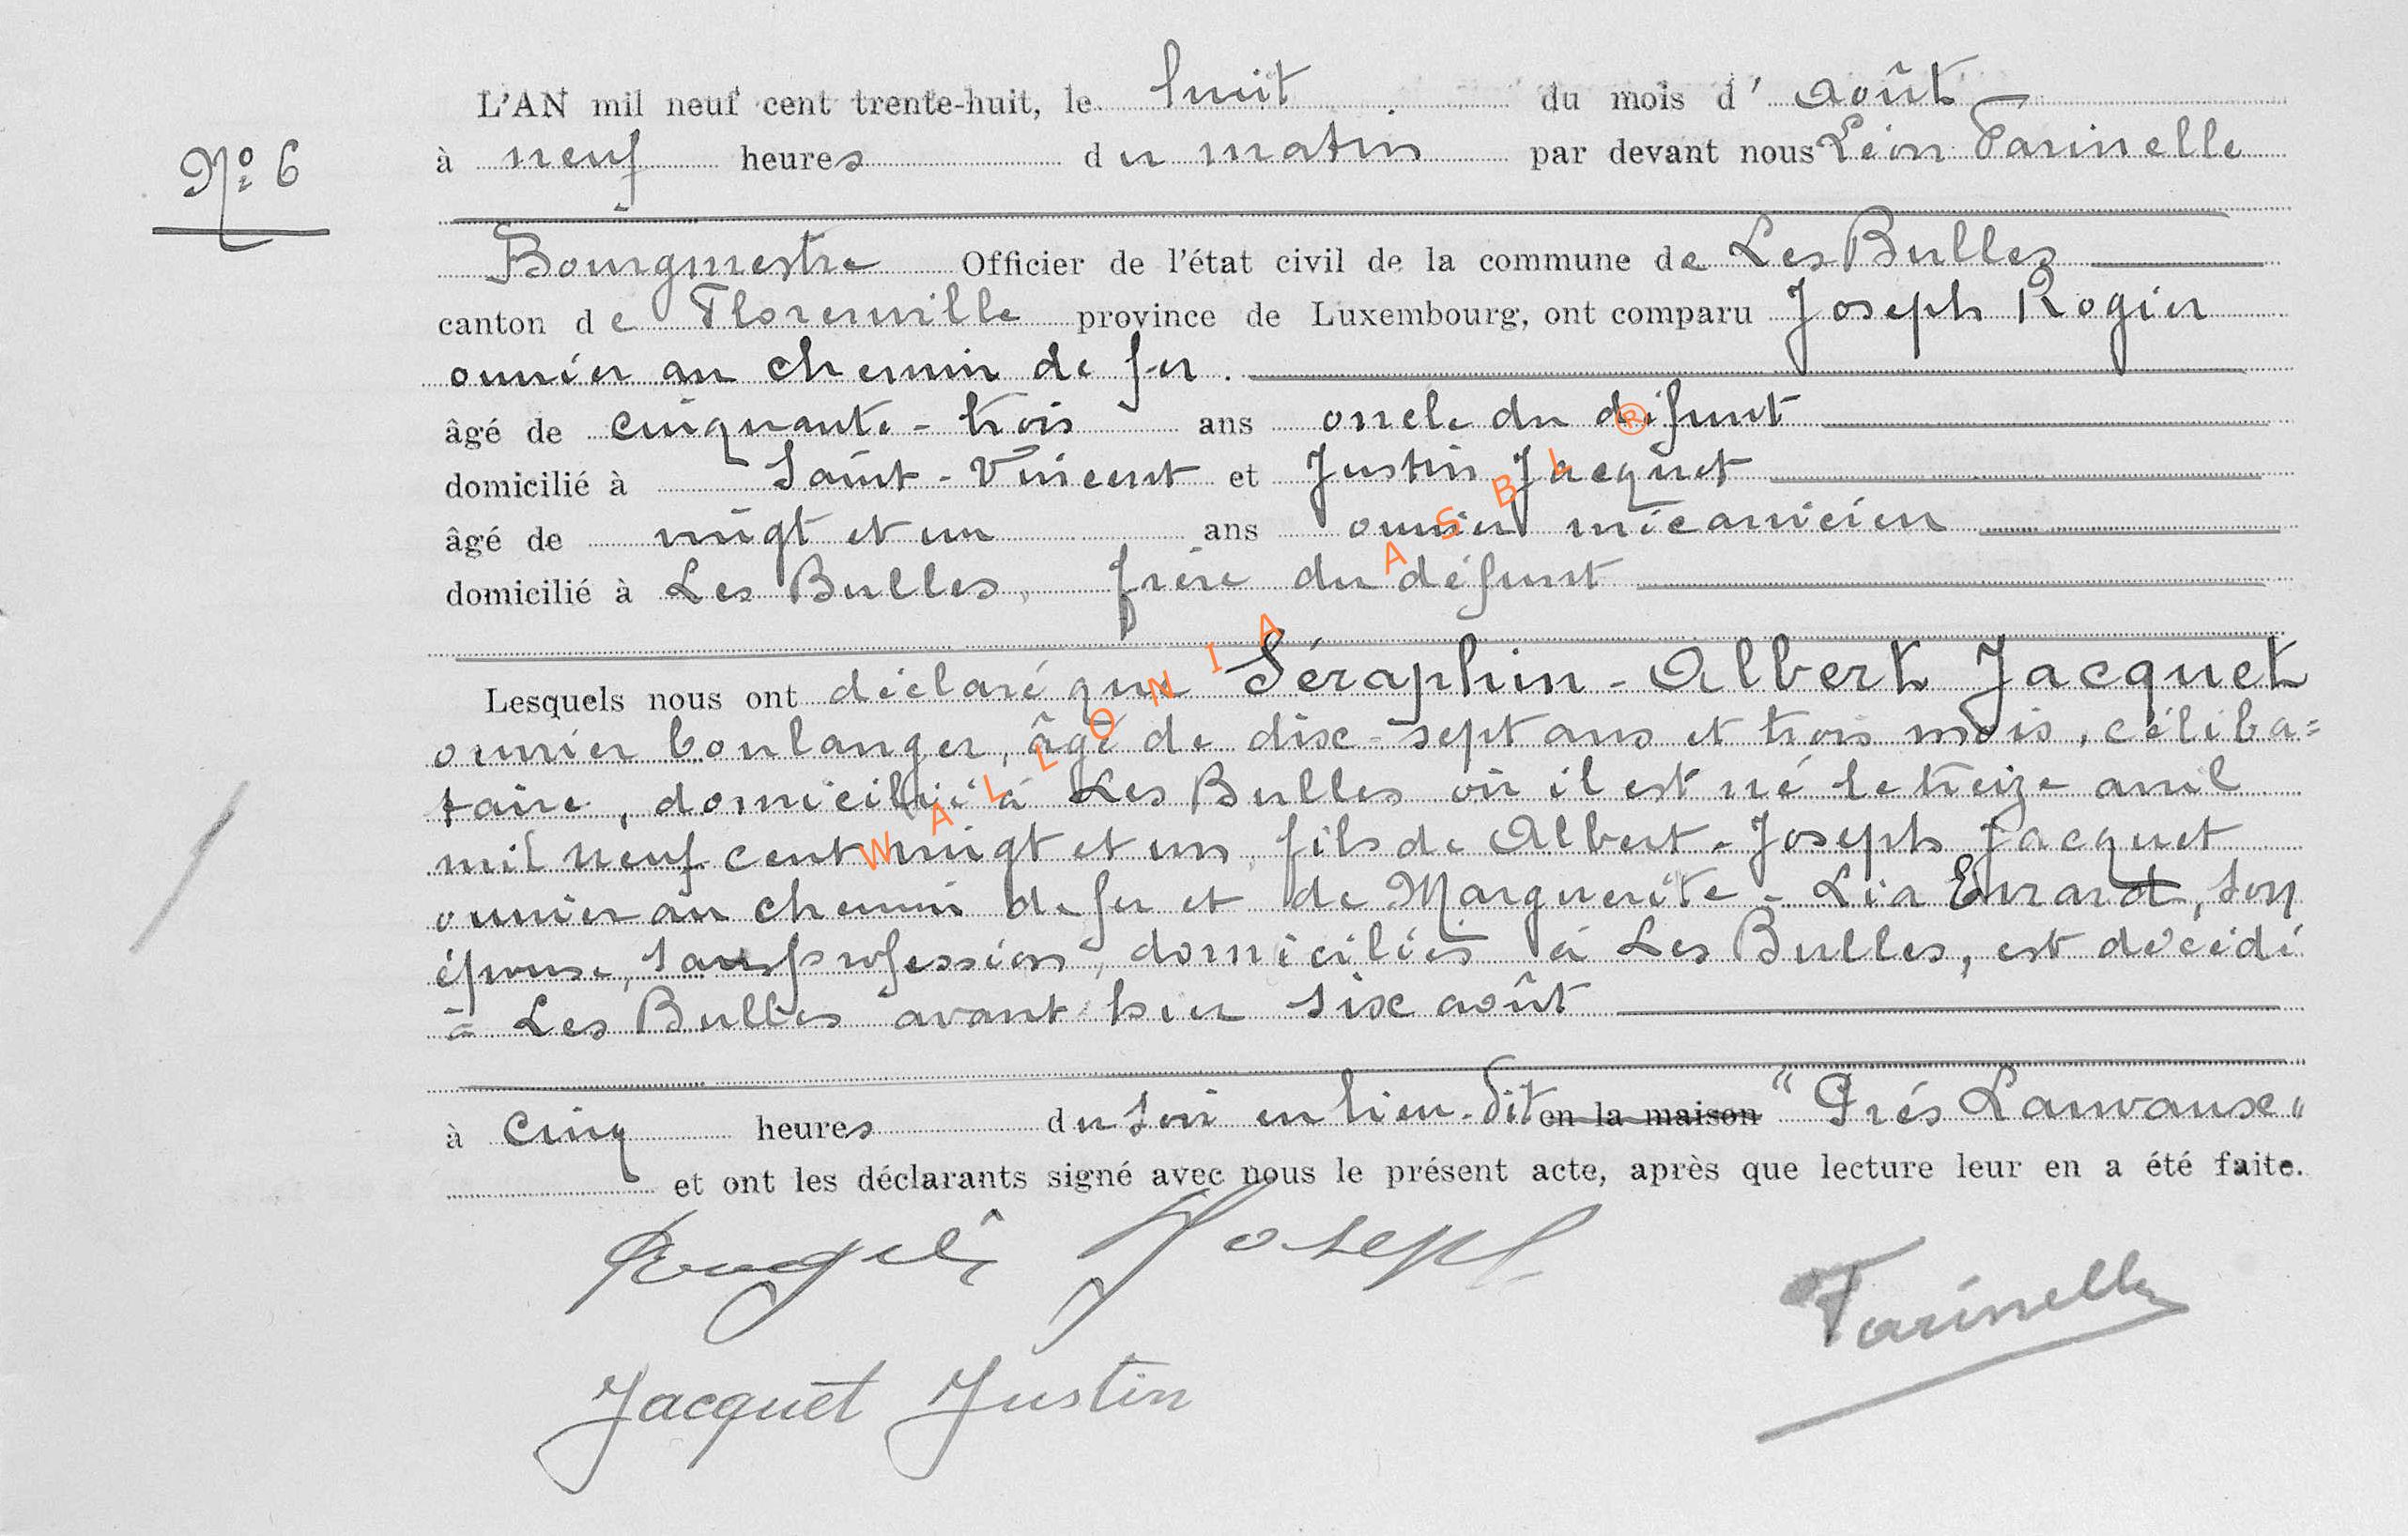 L'AN mil neuf cent trente-huit, le huit du mois d' août
N° 6
à neuf heures du matin par devant nous Léon Farinelle
Bourgmestre Officier de l'état civil de la commune de Les Bulles
canton de Florenville province de Luxembourg, ont comparu Joseph Rogier
ouvrier au chemin de fer.
âgé de cinquante-trois ans oncle du défunt
domicilié à Saint-Vincent et Justin Jacquet
âgé de vingt et un ans ouvrier mécanicien
domicilié à Les Bulles, frère du défunt
Lesquels nous ont déclaré que Séraphin-Albert Jacquet
ouvrier boulanger, âgé de dix-sept ans et trois mois, céliba=
taire, domicilié à Les Bulles où il est né le treize avril
mil neuf cent vingt et un, fils de Albert-Joseph Jacquet
ouvrier au chemin de fer et de Marguerite-Lia Evrard, son
épouse, sans profession, domiciliés à Les Bulles, est décédé
à Les Bulles avant-hier six août
à cinq heures du soir en lieu-dit en la maison "Prés Lawvaux"
et ont les déclarants signé avec nous le présent acte, après que lecture leur en a été faite.
Joseph
Farinelle
Jacquet Justin
WALLONIA ASBL ®